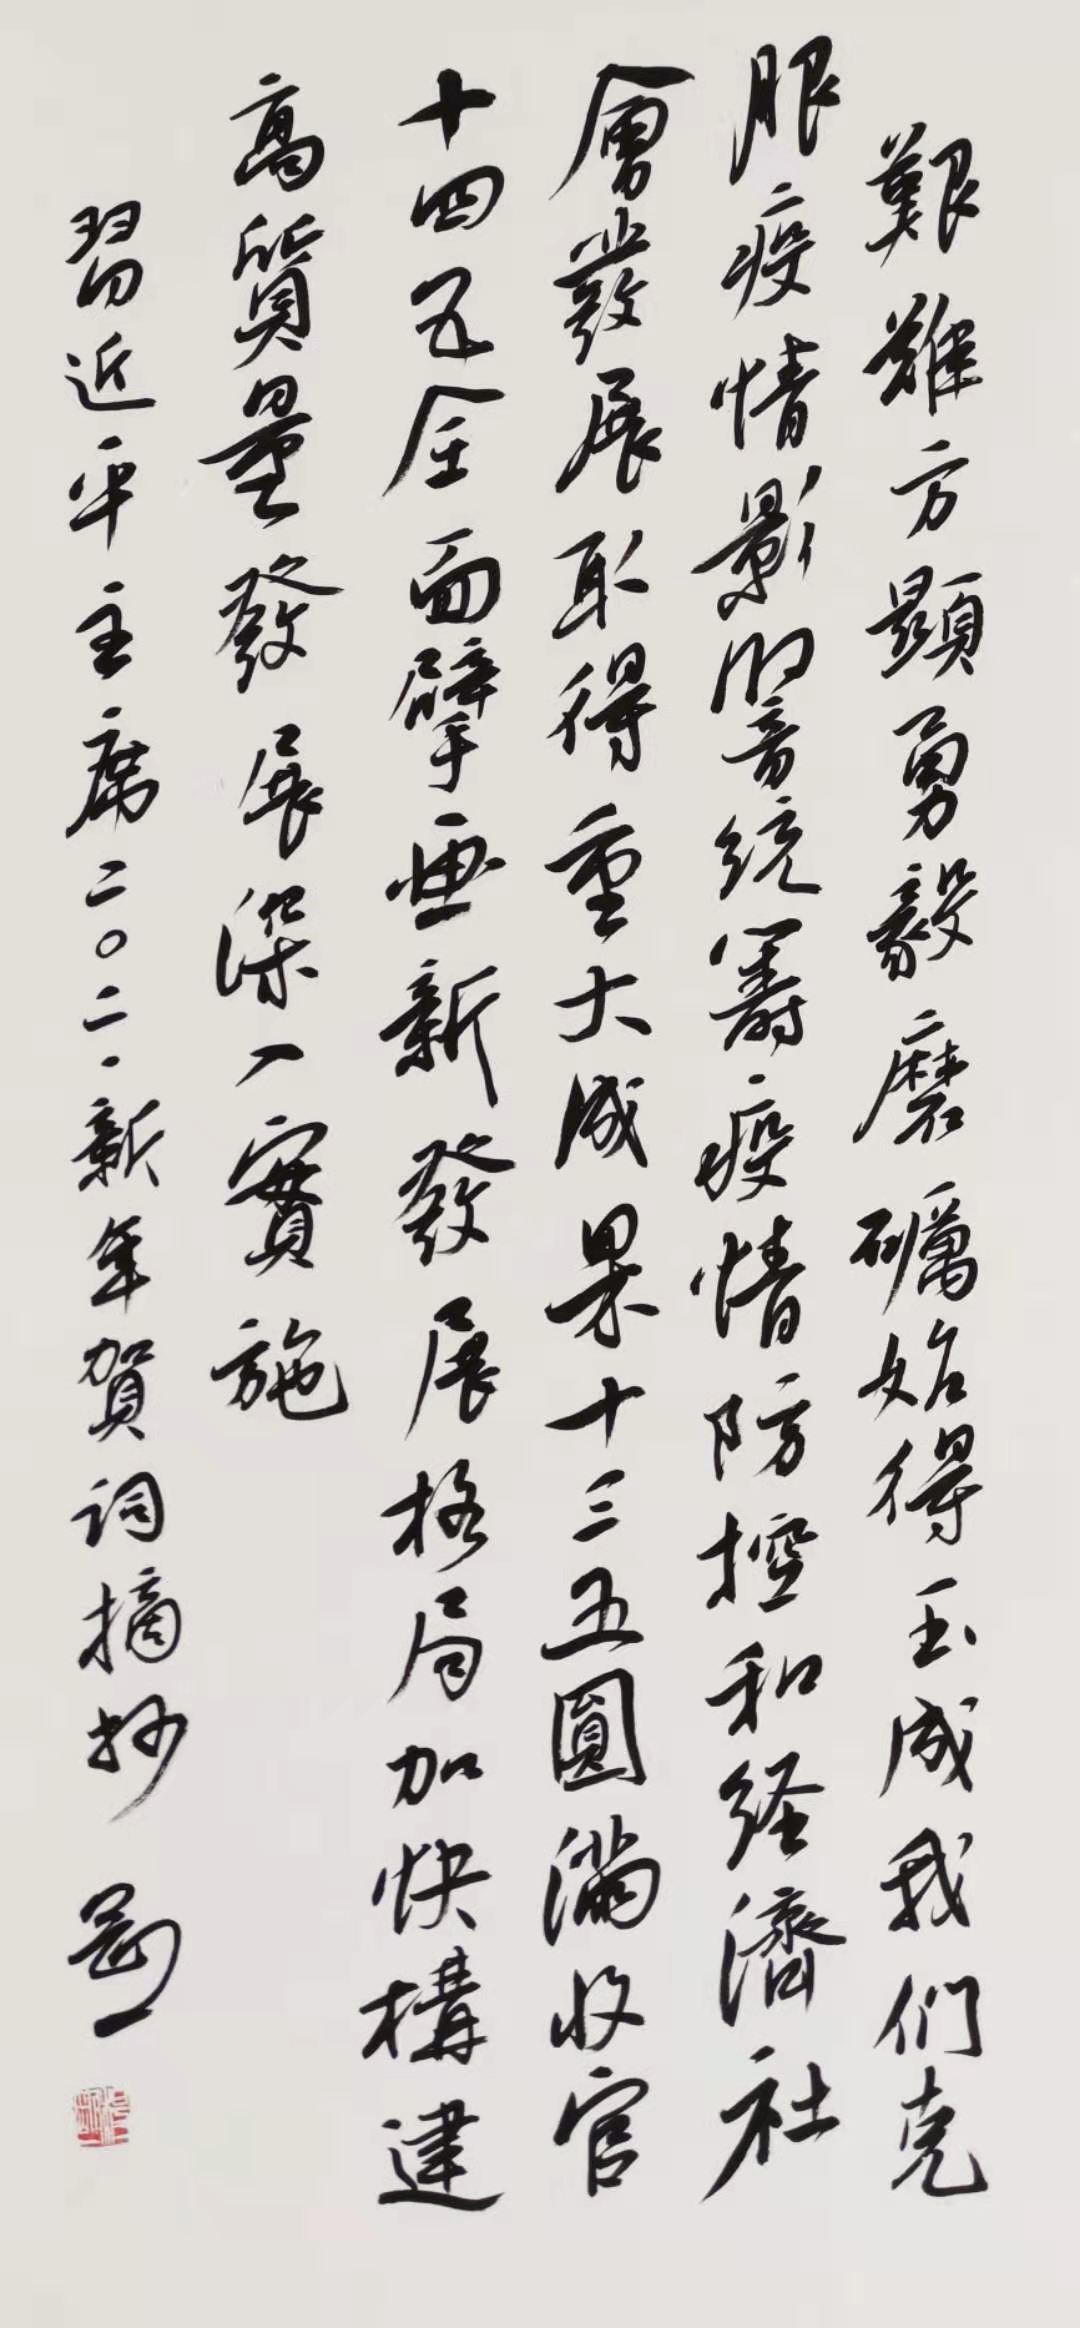 艱難方顯勇毅磨礪始得玉成我们克
服疫情影響统籌疫情防控和经濟社
會發展取得重大成果十三五圓滿收官
十四五全面擘畫新發展格局加快構建
高質量發展深入實施
習近平主席二〇二一新年賀词摘抄